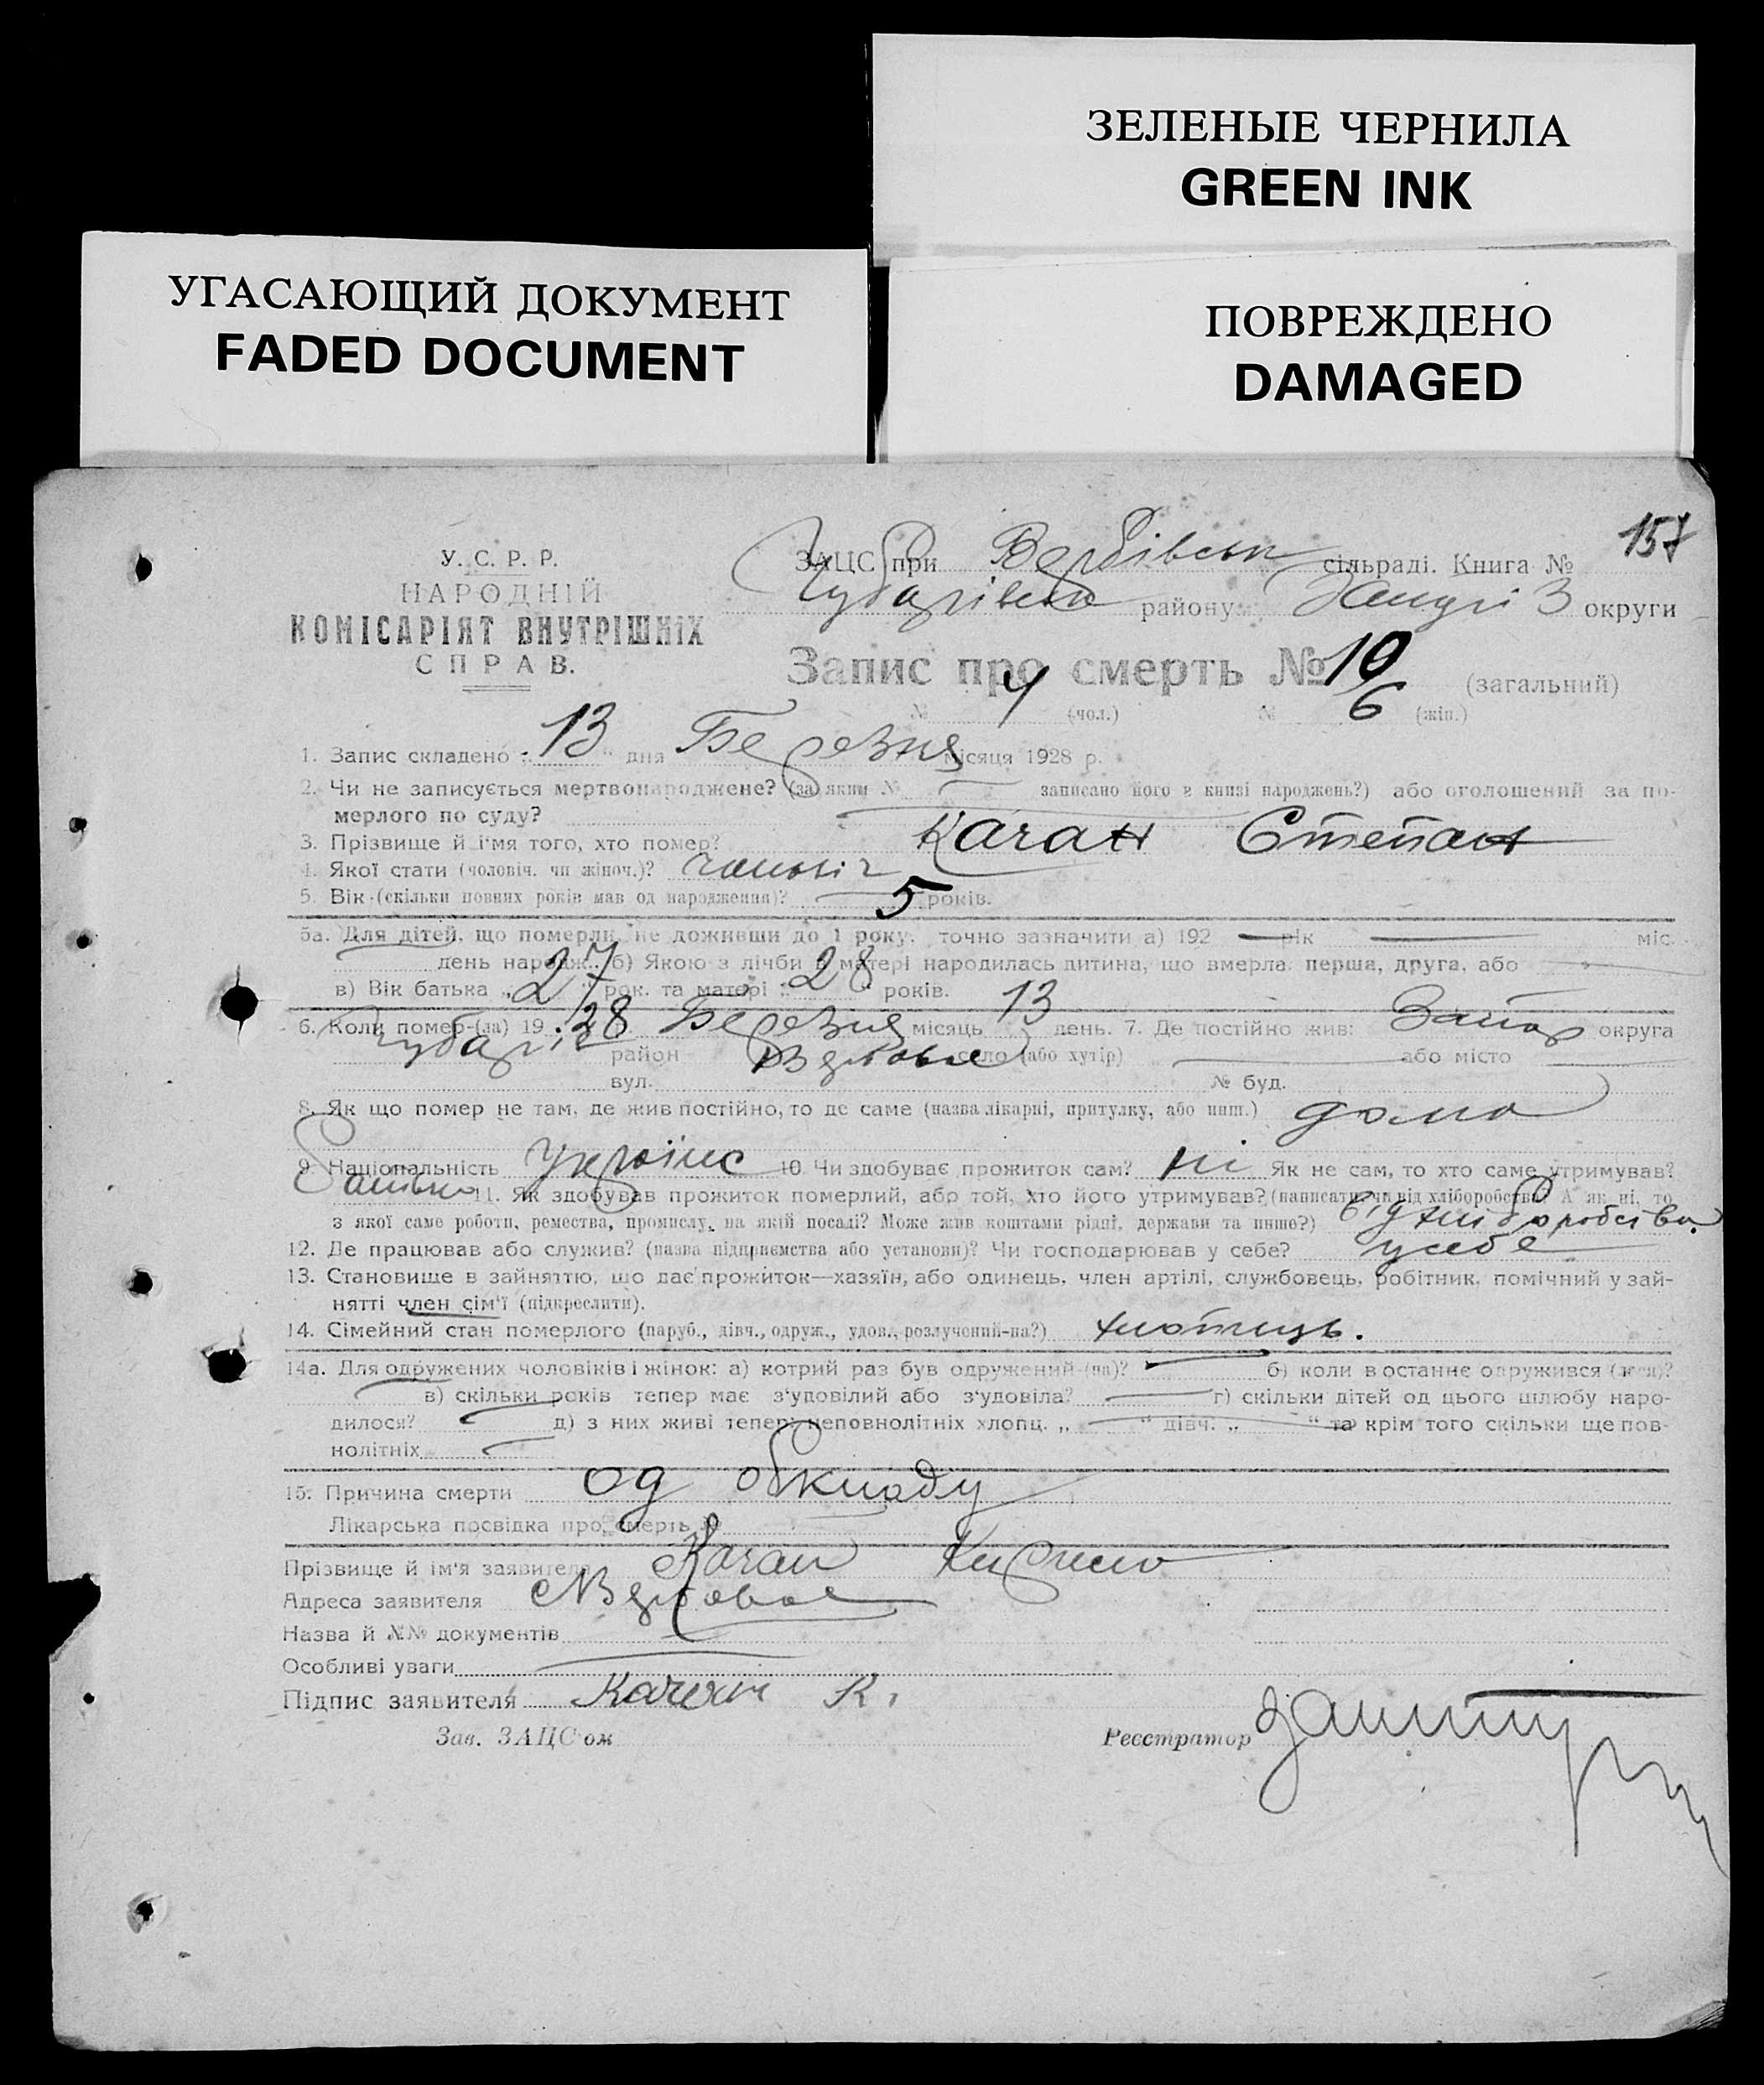 ЗЕЛЕНЫЕ ЧЕРНИЛА
GREEN INK
УГАСАЮЩИЙ ДОКУМЕНТ
FADED DOCUMENT
ПОВРЕЖДЕНО
DAMAGED
157
У. С. Р. Р.
НАРОДНІЙ
КОМІСАРІЯТ ВНУТРІШНІХ
СПРАВ.
ЗАЦС при Вербівськ сільраді. Книга №
Чубарівськ району округи
Запис про смерть № 10 (загальний)
№ 4 (чол.) № 6 (жін.)
1. Запис складено „13“ дня Березня місяця 1928 р.
2. Чи не записується мертвонароджене? (за яким № записано його в книзі народжень?) або оголошений за по-
мерлого по суду?
3. Прізвище й ім'я того, хто помер? Качан Степан
4. Якої стати (чоловіч. чи жіноч.)? чоловіч
5. Вік (скільки повних років мав од народження)? 5 років.
5а. Для дітей, що померли, не доживши до 1 року, точно зазначити а) 192 рік міс.
день народж. б) Якою з лічби в матері народилась дитина, що вмерла: перша, друга, або
в) Вік батька „27“ рок. та матері „28“ років.
6. Коли помер-(ла) 19 28 р. Березня місяць 13 день. 7. Де постійно жив: Запор округа
Чубар район Вербове село (або хутір) або місто
вул. № буд.
8. Як що помер не там, де жив постійно, то де саме (назва лікарні, притулку, або инш.) дома
9. Національність Україінс 10. Чи здобуває прожиток сам? ні Як не сам, то хто саме утримував?
Батько 11. Як здобував прожиток померлий, або той, хто його утримував? (написати чи від хліборобства. А як ні, то
з якої саме роботи, ремества, промислу, на якій посаді? Може жив коштами рідні, держави та инше?) від хліборобства.
12. Де працював або служив? (назва підприємства або установи)? Чи господарював у себе? у себе
13. Становище в зайняттю, що дає прожиток—хазяїн, або одинець, член артілі, службовець, робітник, помічний у зай-
нятті член сім'ї (підкреслити).
14. Сімейний стан померлого (паруб., дівч., одруж., удов., розлучений-на?) хлопець.
14а. Для одружених чоловіків і жінок: а) котрий раз був одружений-(на)? б) коли востаннє одружився (лася)?
в) скільки років тепер має з'удовілий або з'удовіла? г) скільки дітей од цього шлюбу наро-
дилося? д) з них живі тепер: неповнолітніх хлопц. „ “ дівч. „ “ та крім того скільки ще пов-
нолітніх
15. Причина смерти од обкладу
Лікарська посвідка про смерть №
Прізвище й ім'я заявителя Качан Кирило
Адреса заявителя с Вербове
Назва й №№ документів
Особливі уваги
Підпис заявителя Качан К.
Зав. ЗАЦС'ом Реєстратор